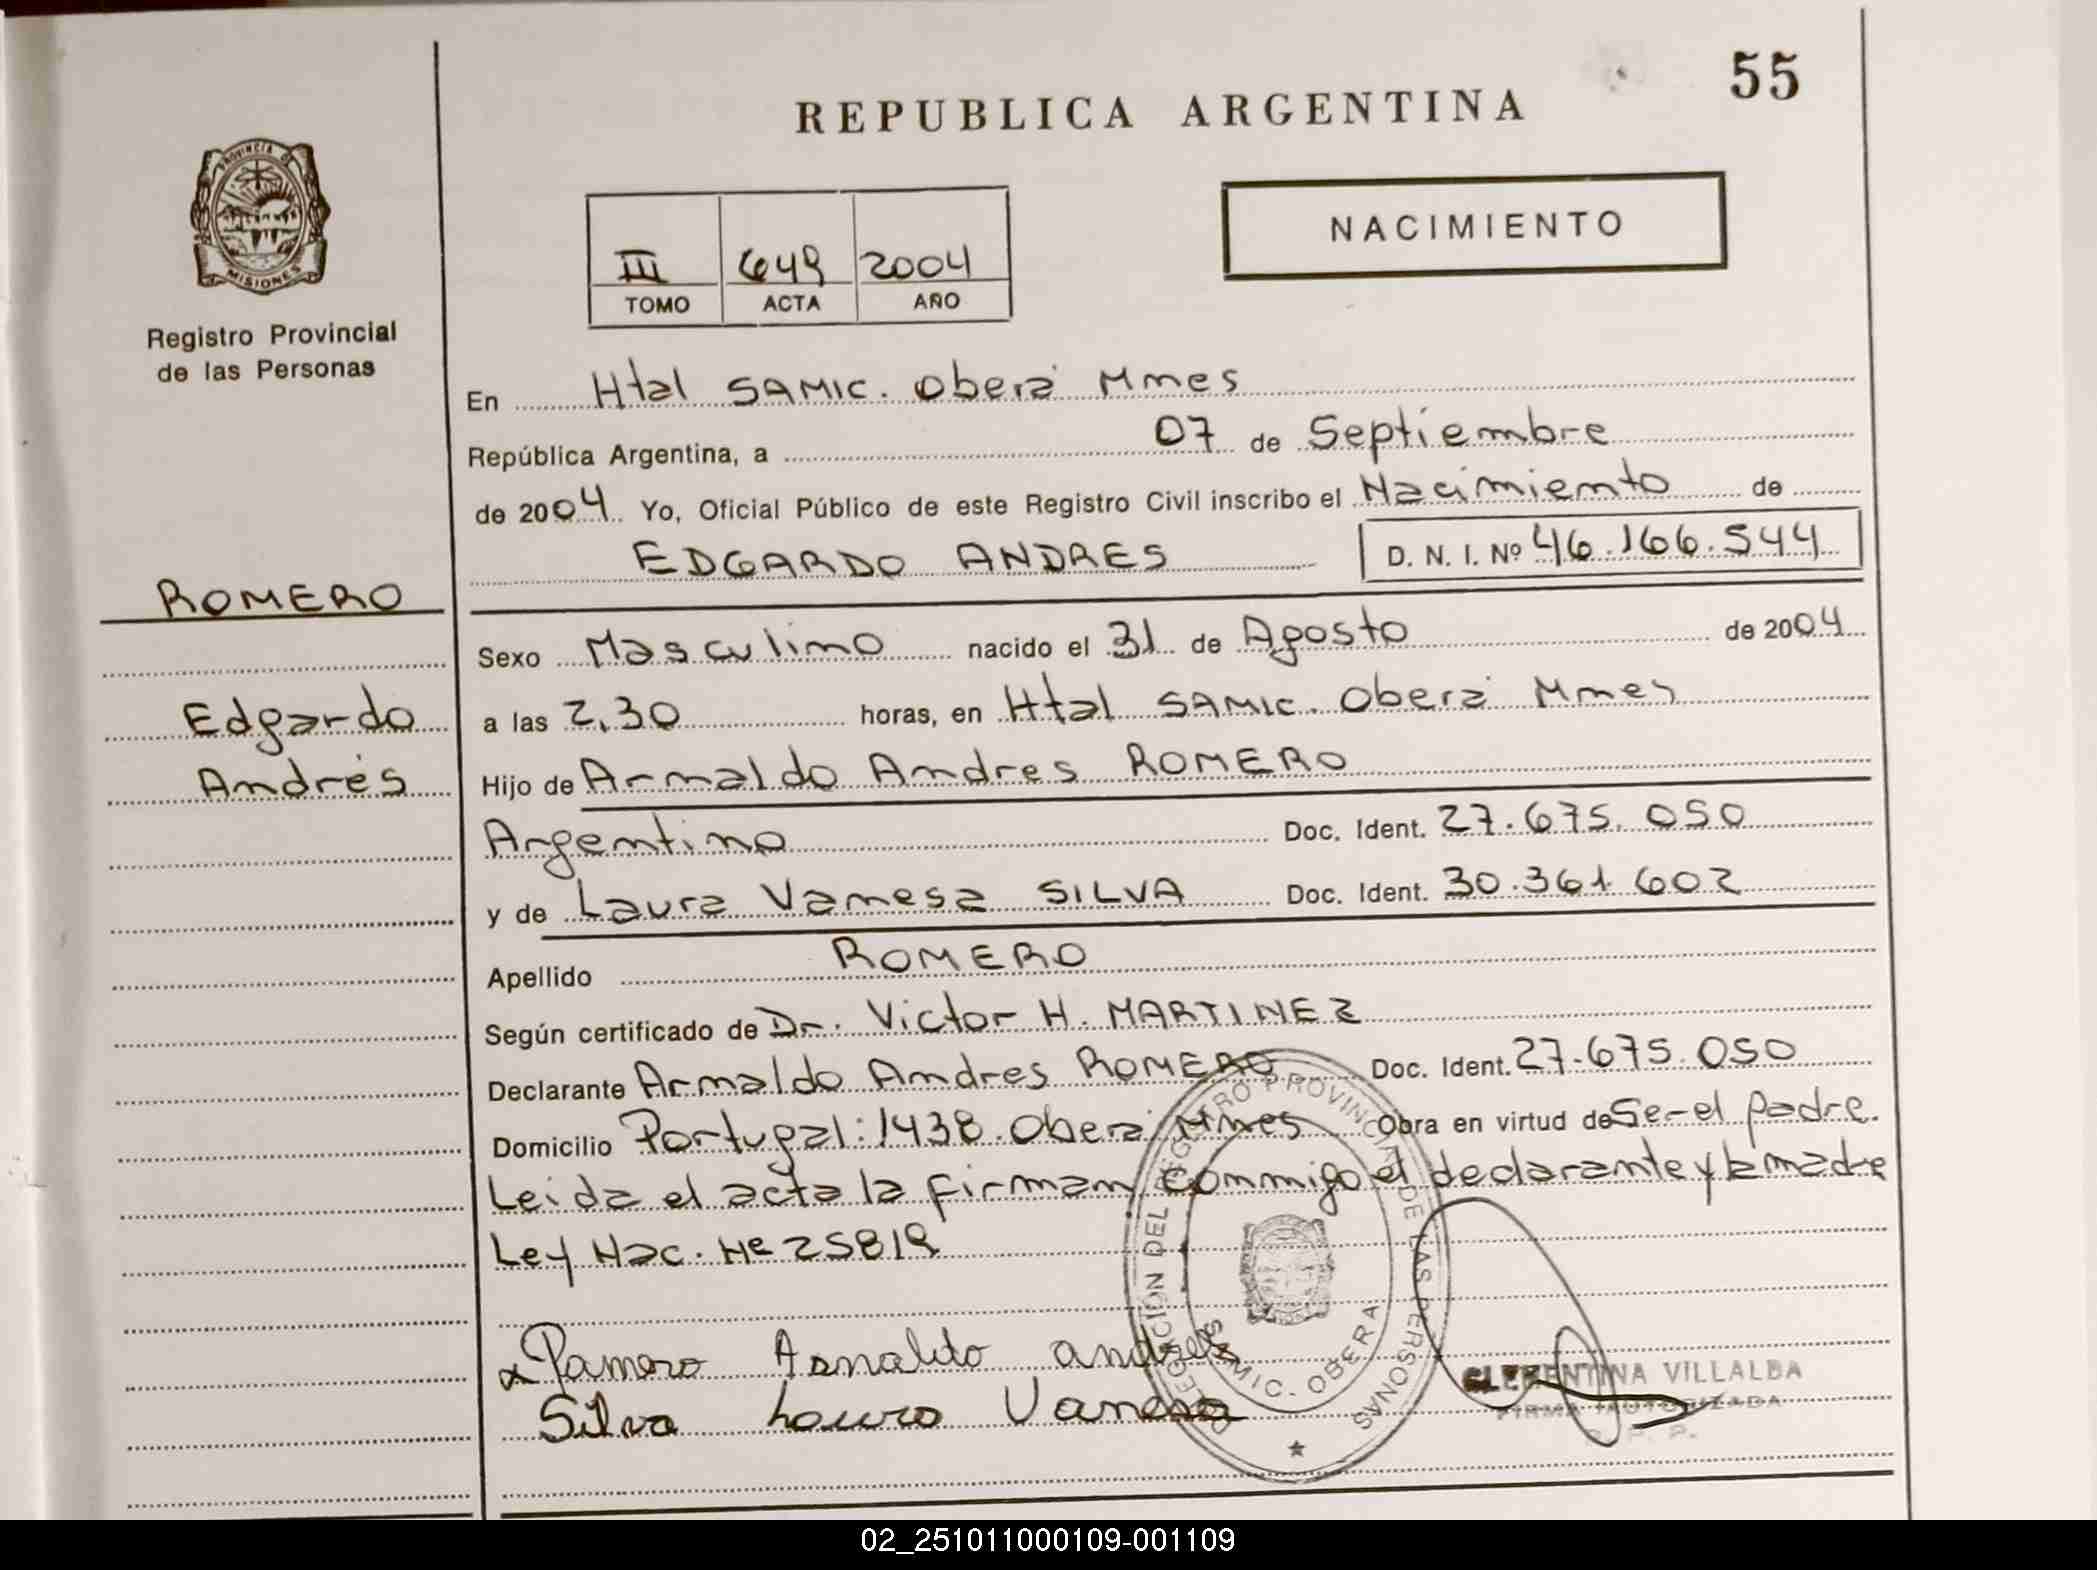 55
REPUBLICA ARGENTINA
PROVINCIA DE
MISIONES
Registro Provincial
de las Personas
III 649 2004
TOMO ACTA AÑO
NACIMIENTO
En Htal SAMIC. Oberá Mnes
República Argentina, a 07 de Septiembre
de 2004 Yo, Oficial Público de este Registro Civil inscribo el Nacimiento de
EDGARDO ANDRES D. N. I. Nº 46.166.544
ROMERO
Edgardo
Andrés
Sexo Masculino nacido el 31 de Agosto de 2004
a las 2,30 horas, en Htal SAMIC. Oberá Mnes
Hijo de Arnaldo Andres ROMERO
Argentino Doc. Ident. 27.675.050
y de Laura Vanesa SILVA Doc. Ident. 30.361.602
Apellido ROMERO
Según certificado de Dr. Victor H. MARTINEZ
Declarante Arnaldo Andres ROMERO Doc. Ident. 27.675.050
Domicilio Portugal: 1438. Oberá Mnes Obra en virtud de Ser el padre.
Leida el acta la firman conmigo el declarante y la madre
Ley Nac. Nº 25819
Romero Arnaldo andres
Silva Laura Vanesa
DELEGACIÓN DEL REGISTRO PROVINCIAL DE LAS PERSONAS
SAMIC. OBERA
CLEMENTINA VILLALBA
FIRMA AUTORIZADA
02_251011000109-001109